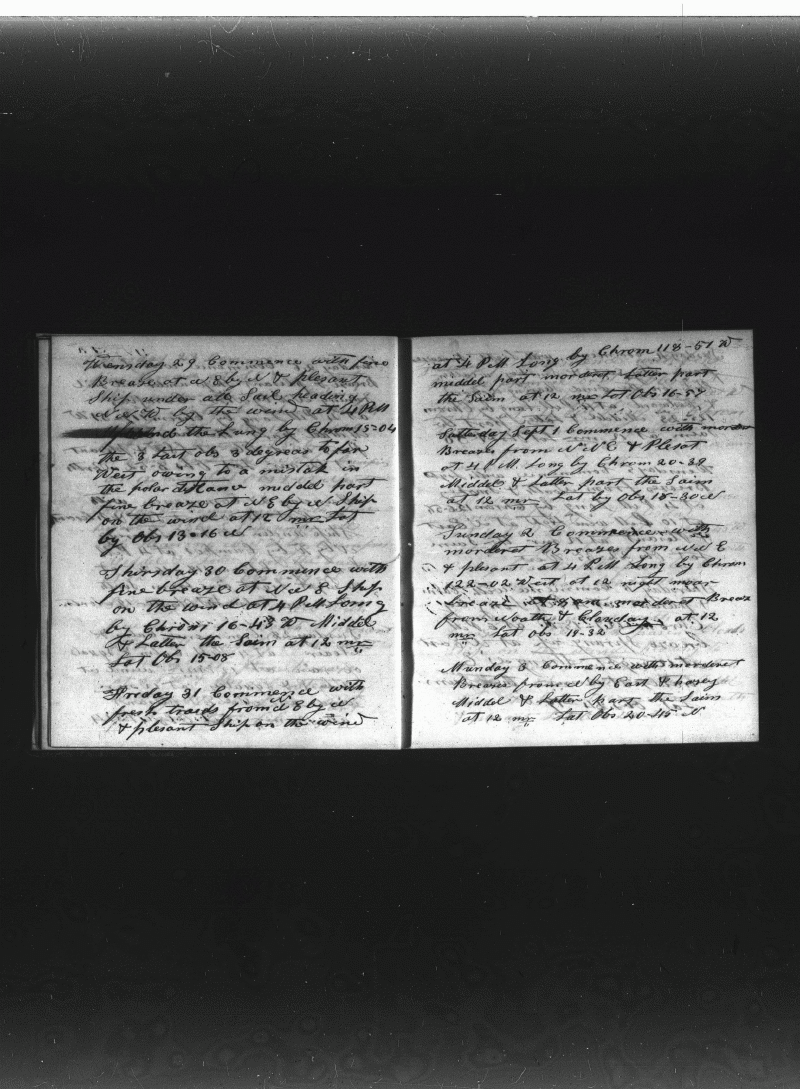 Wensday 29 Commence with fine
Breaze at N E by N & plesant
Ship under all Sail heading
N N W by the wind at 4 PM
found the Lung by Chrom 15-04
the 3 last obs 3 degrees to far
West owing to a mistak in
the polar distance middel part
fine breaze at N E by N Ship
on the wind at 12 mr Lat
by Obs 13-16 N
Thirsday 30 Commence with
fine breaze at N N E Ship
on the wind at 4 PM Long
by Chrom 16-43 W Middel
& Latter the Saim at 12 mr
Lat Obs 15-08
Firday 31 Commence with
fresh traids from N E by N
& plesant Ship on the wind
at 4 PM Long by Chrom 118-51 W
middel part morderet Latter part
the Saim at 12 mr Lat Obs 16-57
Satterday Sept 1 Commence with morder
Breazes from N N E & Plesat
at 4 P M Long by Chrom 20-39
Middel & Latter part the Saim
at 12 mr Lat by Obs 18-30 N
Sunday 2 Commence with
morderet Breazes from N N E
& plesant at 4 PM Long by Chrom
122-02 West at 12 night
morderet Breaz
from North & Clouday at 12
mr Lat Obs 19-32
Munday 3 Commence with morderet
Breazes from N by East & hazey
Middel & Latter part the Saim
at 12 mr Lat Obs 20-45 N